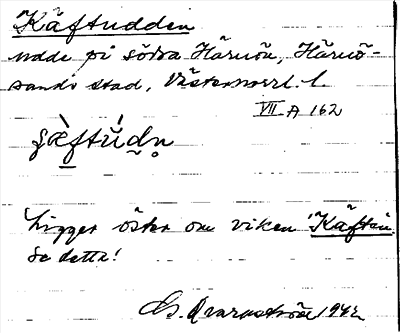 Käftudden
udde på södra Härnön, Härnö-
sands stad, Västernorrl. l.
VII A 162
Ligger öster om viken Käften.
Se detta!
1942